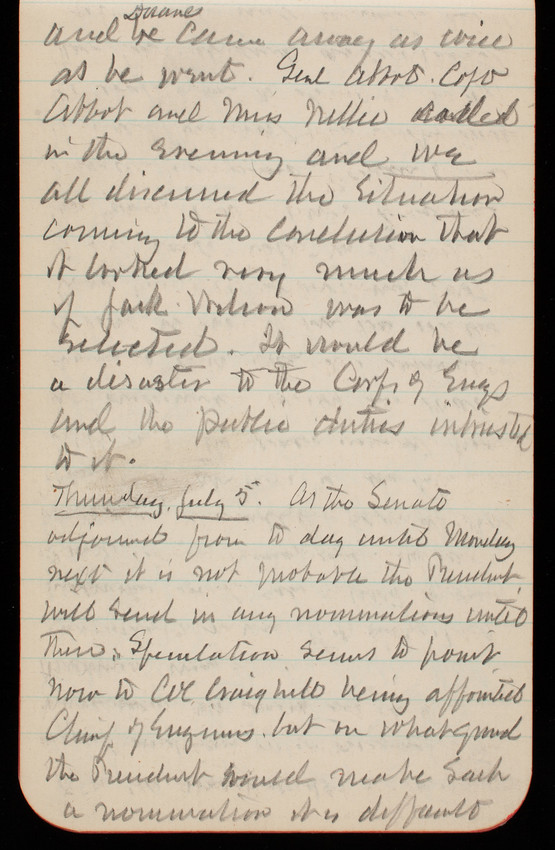 Duane
and he came away as wise
as he went. Genl Abbot. Capt
Abbot and Miss Nellie called
in the evening and we
all discussed the situation
coming to the conclusion that
it looked very much as
if Jack Wilson was to be
selected. It would be
a disaster to the Corps of Engs
and the public duties intrusted
to it.
Thursday, July 5. As the Senate
adjourned from to day until Monday
next it is not probable the President
will send in any nominations until
then. Speculation seems to point
now to Col. Craighill being appointed
Chief of Engineers. but on what ground
the President would make such
a nomination it is difficult